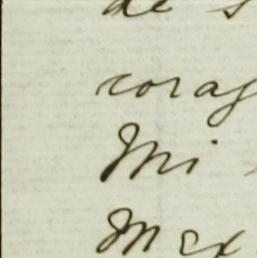 de s
coraz
Mi
Mex